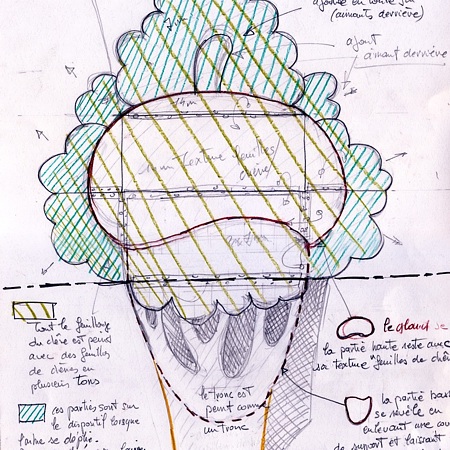 (aimants derrière)
ajout
aimant derrière
14 m
texture feuilles
chêne
tout le feuillage
du chêne est peint
avec des feuilles
de chênes en
plusieurs tons
le gland se
la partie haute reste avec
sa texture "feuilles de chêne
ces parties sont sur
le dispositif lorsque
se déplie.
le tronc est
peint comme
un tronc
la partie bas
se révèle en
enlevant une
de support et laissant